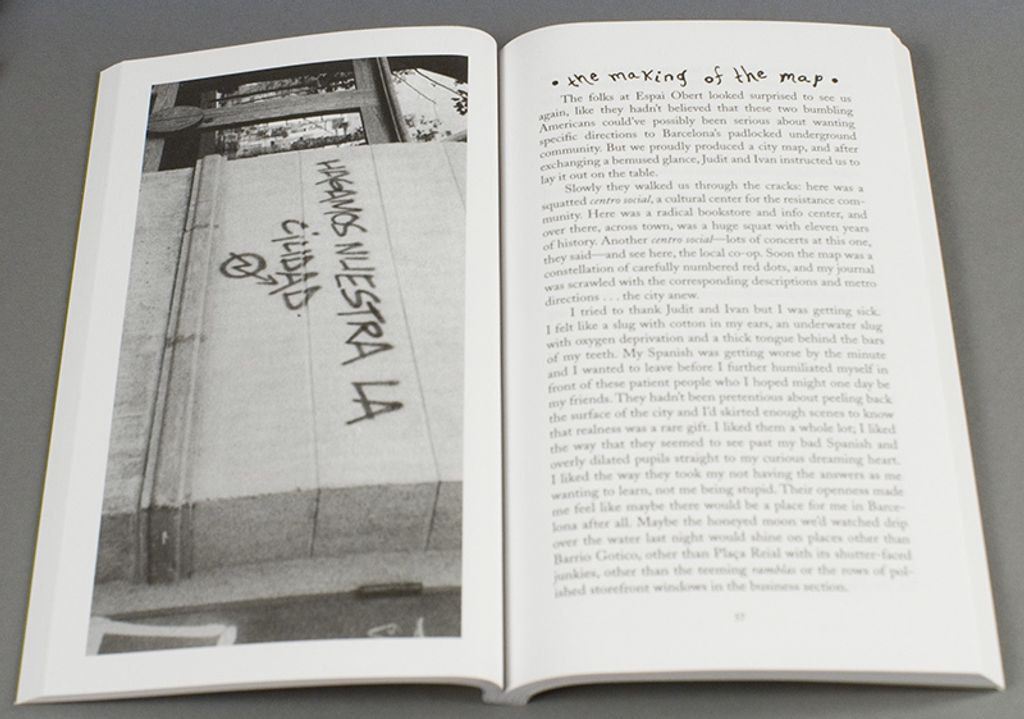 HAGANOS NUESTRA LA
CIUDAD.
• the making of the map •
The folks at Espai Obert looked surprised to see us
again, like they hadn't believed that these two bumbling
Americans could've possibly been serious about wanting
specific directions to Barcelona's padlocked underground
community. But we proudly produced a city map, and after
exchanging a bemused glance, Judit and Ivan instructed us to
lay it out on the table.
Slowly they walked us through the cracks: here was a
squatted centro social, a cultural center for the resistance com-
munity. Here was a radical bookstore and info center, and
over there, across town, was a huge squat with eleven years
of history. Another centro social—lots of concerts at this one,
they said—and see here, the local co-op. Soon the map was a
constellation of carefully numbered red dots, and my journal
was scrawled with the corresponding descriptions and metro
directions . . . the city anew.
I tried to thank Judit and Ivan but I was getting sick.
I felt like a slug with cotton in my ears, an underwater slug
with oxygen deprivation and a thick tongue behind the bars
of my teeth. My Spanish was getting worse by the minute
and I wanted to leave before I further humiliated myself in
front of these patient people who I hoped might one day be
my friends. They hadn't been pretentious about peeling back
the surface of the city and I'd skirted enough scenes to know
that realness was a rare gift. I liked them a whole lot; I liked
the way that they seemed to see past my bad Spanish and
overly dilated pupils straight to my curious dreaming heart.
I liked the way they took my not having the answers as me
wanting to learn, not me being stupid. Their openness made
me feel like maybe there would be a place for me in Barce-
lona after all. Maybe the honeyed moon we'd watched drip
over the water last night would shine on places other than
Barrio Gotico, other than Plaça Reial with its shutter-faced
junkies, other than the teeming ramblas or the rows of pol-
ished storefront windows in the business section.